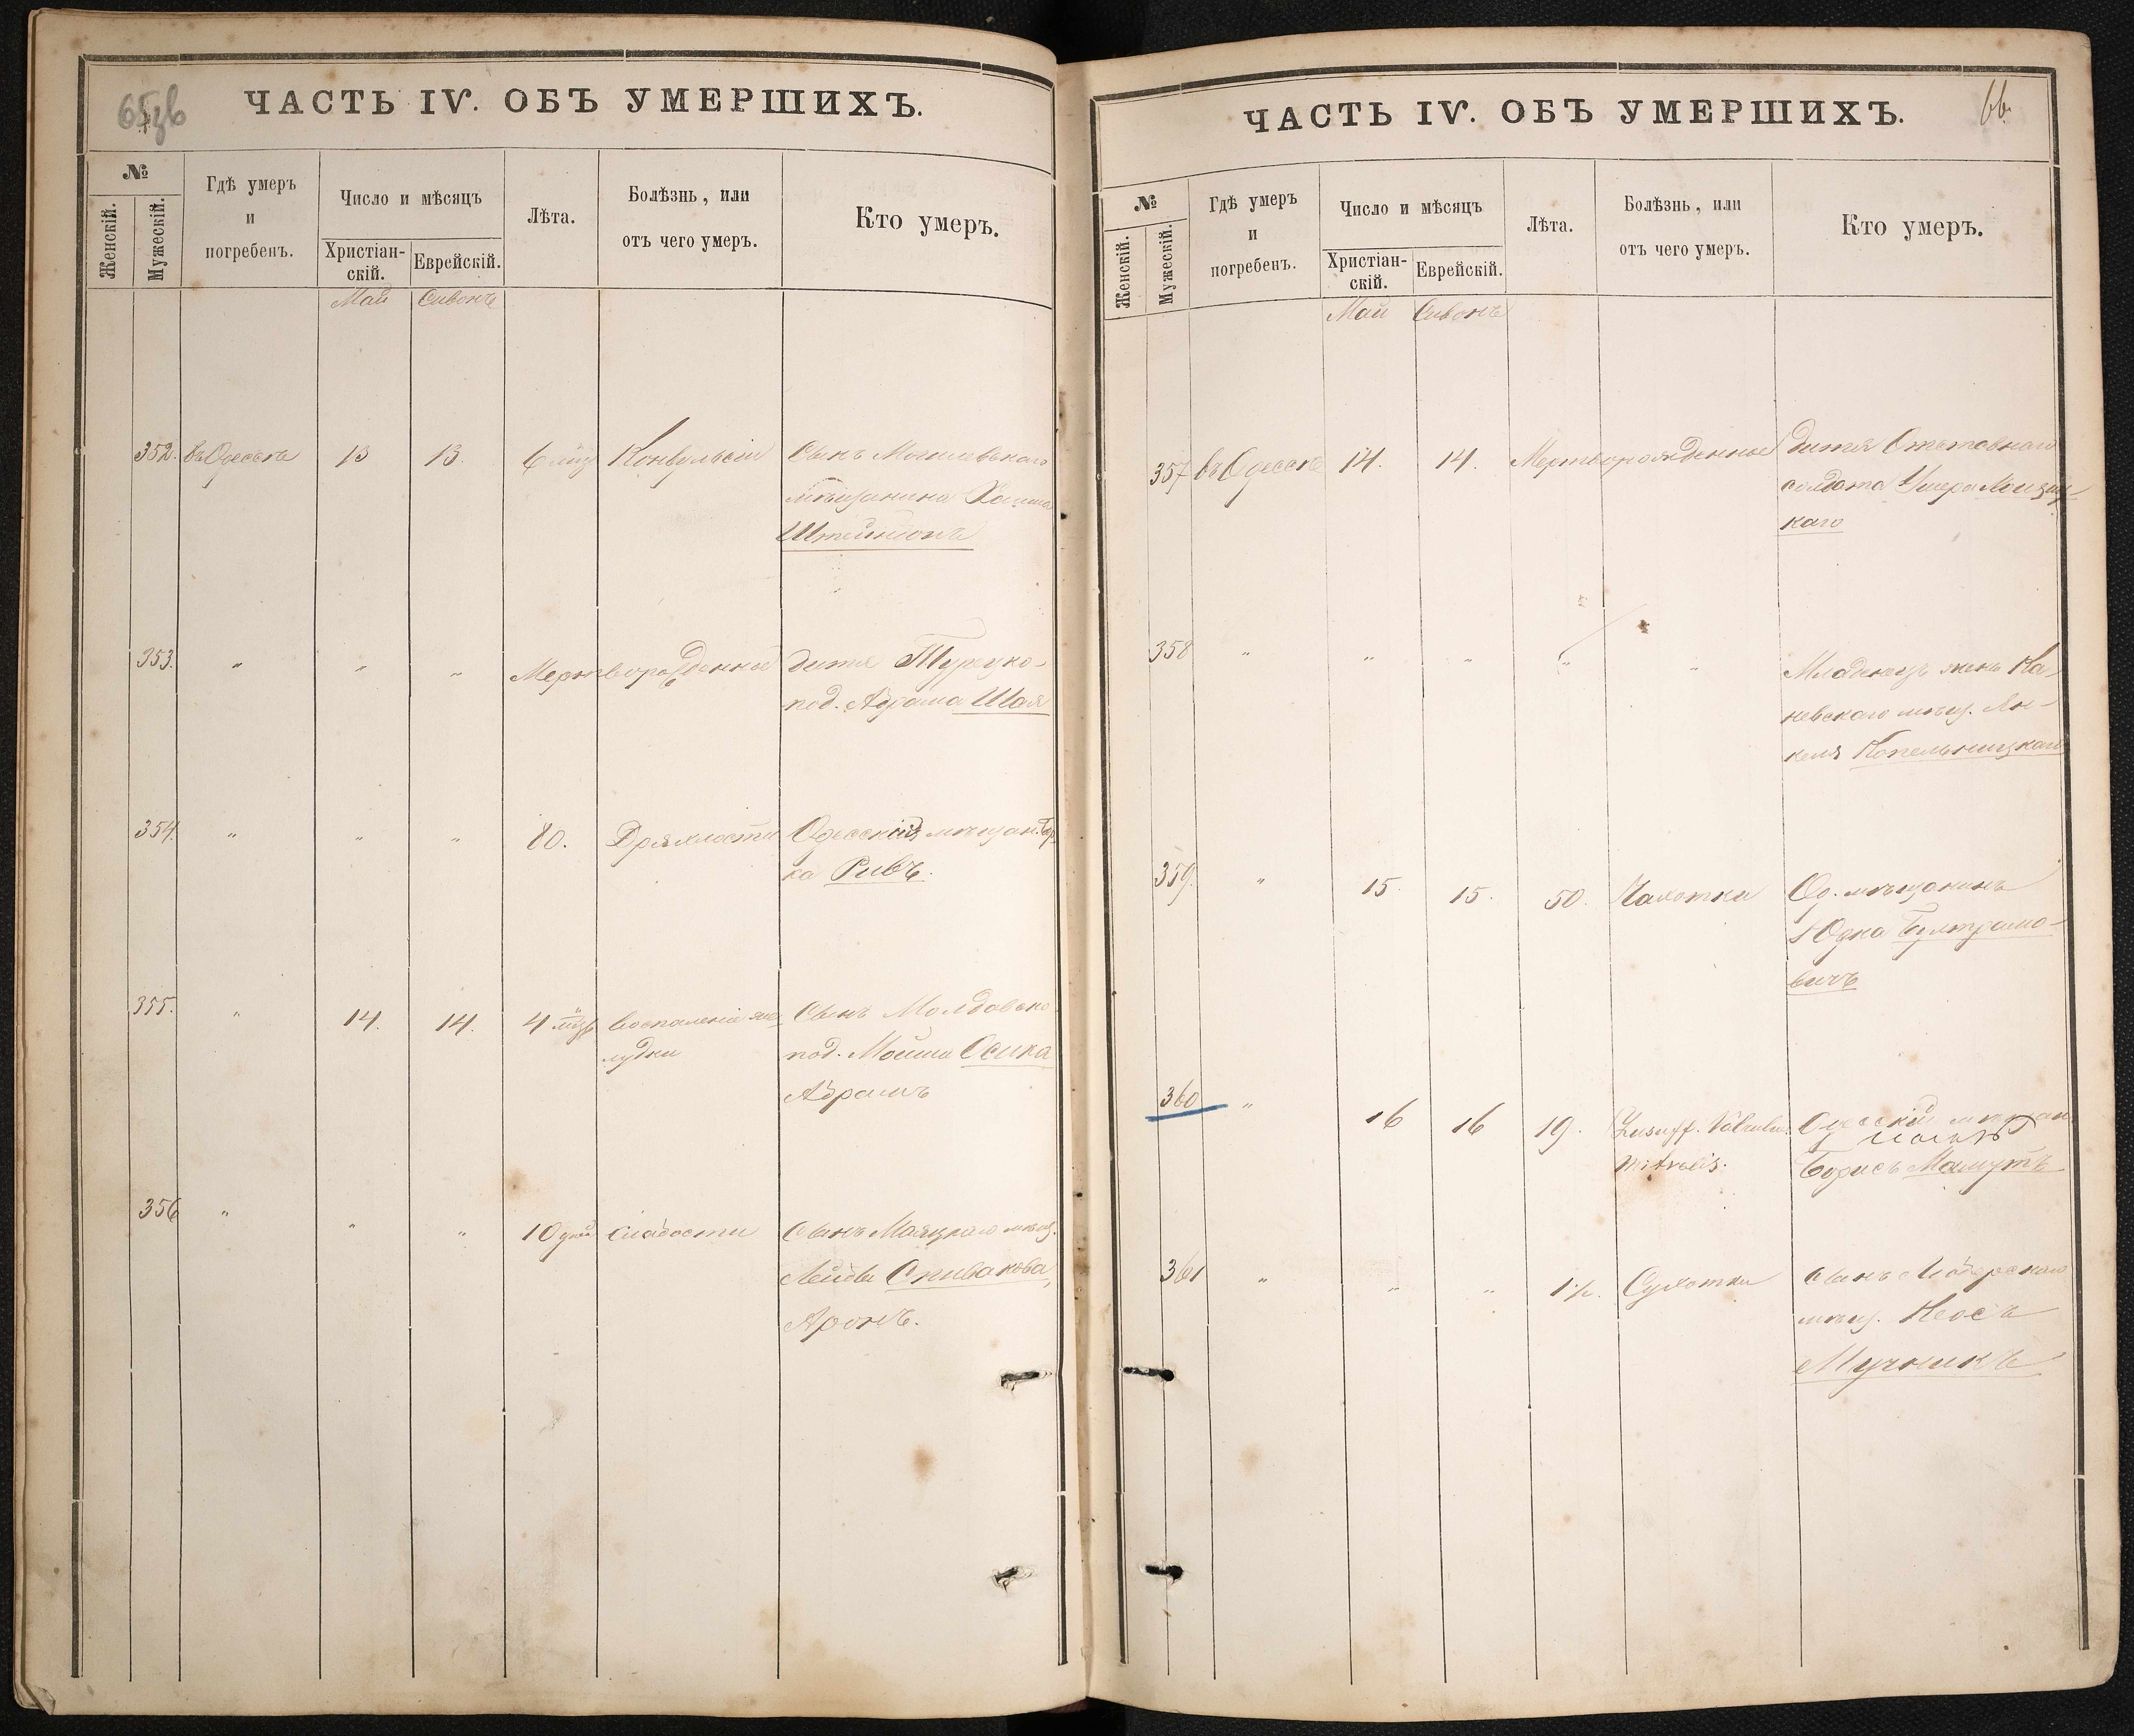 ЧАСТЬ IV. ОБЪ УМЕРШИХЪ.
№
Женскій.
Мужескій.
Гдѣ умеръ
и
погребенъ.
Число и мѣсяцъ
Христіан-
скій.
Еврейскій.
Лѣта.
Болѣзнь, или
отъ чего умеръ.
Кто умеръ.
Май Сивонъ
352. въ Одессѣ 13 13. 6 мѣс Конвульсіи Сынъ Могилевскаго
мѣщанина Хаима
353. " " " Мертворожденное дитя Турецко-
под. Абрама Шая
354. " " " 80. Дряхлости Одесскій мѣщан. Бер
ка Ривъ.
355. " 14. 14. 4 мѣс Воспаленіе же
лудки
Сынъ Молдавско
под. Мойши Осипа
Абрамъ
356 " " " 10 дней Слабости Сынъ Маяцкаго мѣщ.
Лейбы Спивакова,
Аронъ.
ЧАСТЬ IV. ОБЪ УМЕРШИХЪ.
66.
№
Женскій.
Мужескій.
Гдѣ умеръ
и
погребенъ.
Число и мѣсяцъ
Христіан-
скій.
Еврейскій.
Лѣта.
Болѣзнь, или
отъ чего умеръ.
Кто умеръ.
Май Сивонъ
357 въ Одессѣ 14. 14. Мертворожденное дитя Отставнаго
солдата Ушера
каго
358 " " " " " Младенецъ жен. Ка-
невскаго мѣщ. Ян-
келя Копельницкаго
359. " 15. 15. 50. Чахотка Од. мѣщанинъ
Юдка Бултрамо-
вичъ
360 " 16 16 19. Insuff. Valvulae
mitralis.
Одесскій мѣщан
Борисъ Мамутъ
361 " " " 1½. Сухотки Сынъ
мѣщ. Неосъ
Мучникъ